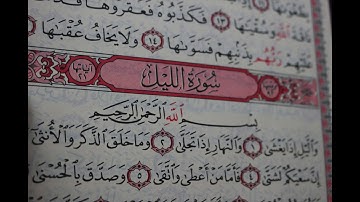 فَكَذَّبُوهُ فَعَقَرُوهَا
عَلَيْهِمْ رَبُّهُم بِذَنۢبِهِمْ فَسَوَّىٰهَا ١٤ وَلَا يَخَافُ عُقْبَٰهَا
سُورَةُ اللَّيْلِ
بِسْمِ اللَّهِ الرَّحْمَٰنِ الرَّحِيمِ
وَالَّيْلِ إِذَا يَغْشَىٰ ١ وَالنَّهَارِ إِذَا تَجَلَّىٰ ٢ وَمَا خَلَقَ الذَّكَرَ وَالْأُنثَىٰ
إِنَّ سَعْيَكُمْ لَشَتَّىٰ ٤ فَأَمَّا مَنْ أَعْطَىٰ وَاتَّقَىٰ ٥ وَصَدَّقَ بِالْحُسْنَىٰ